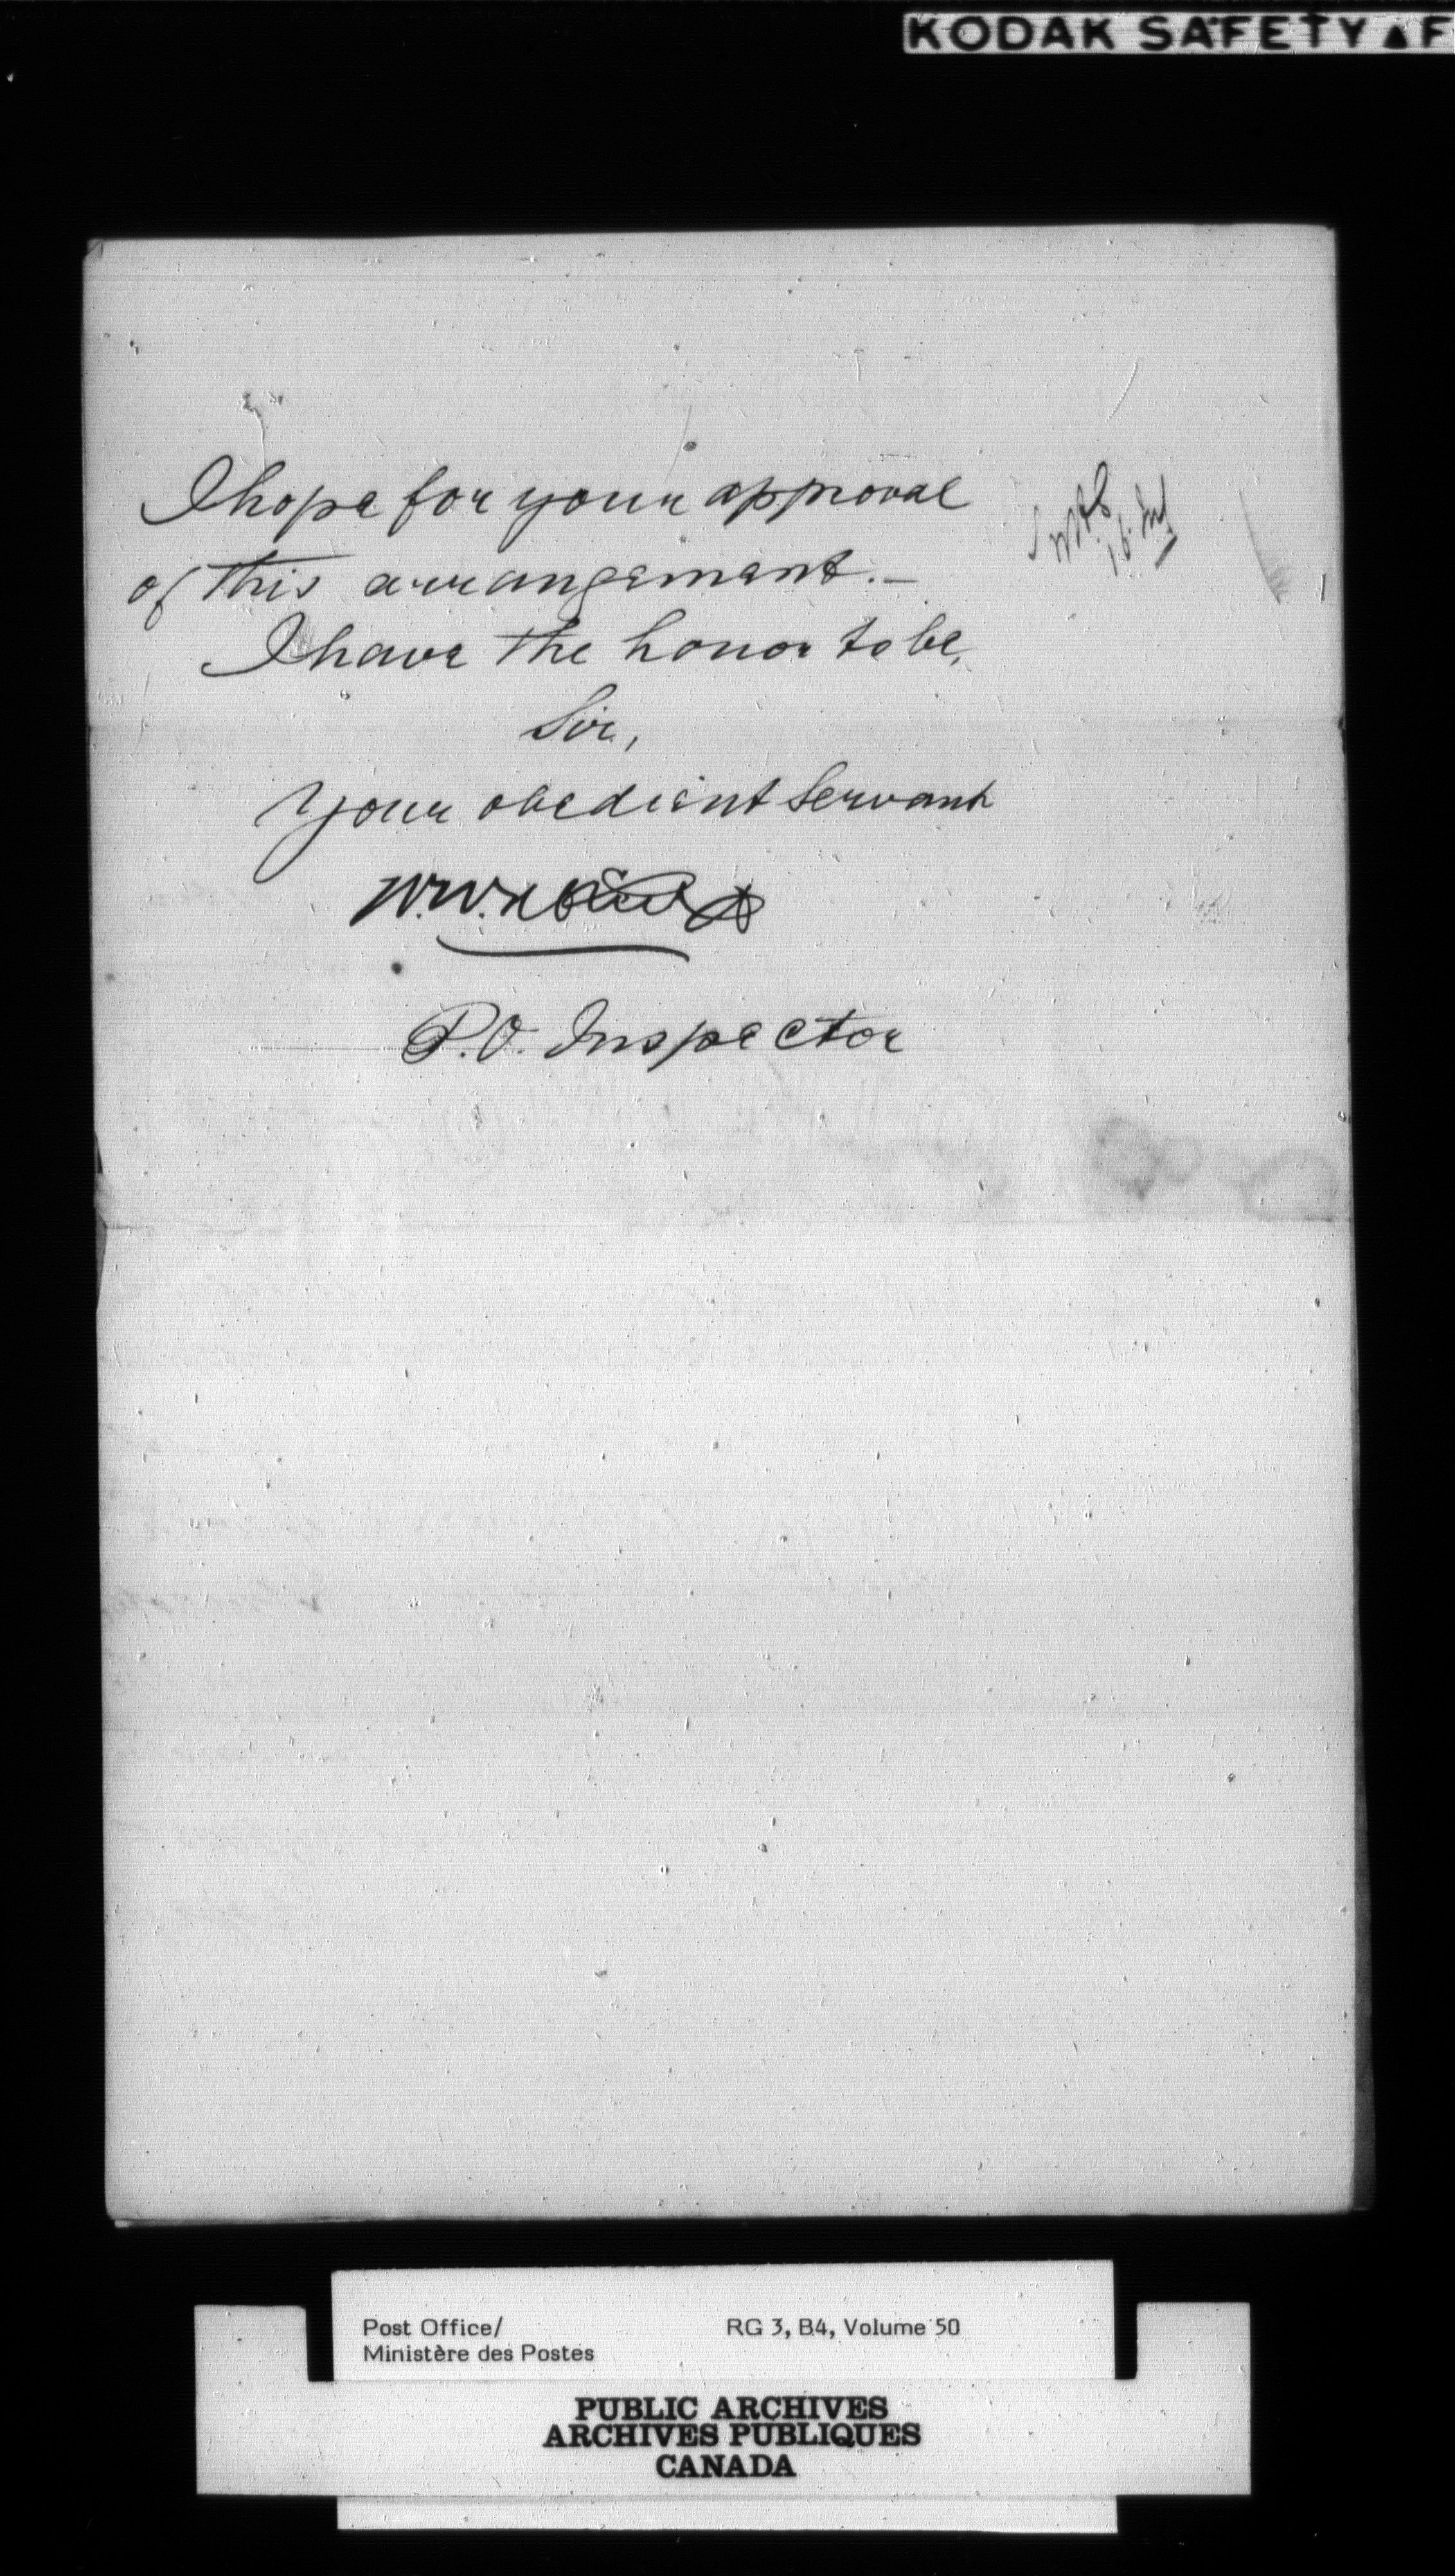 KODAK SAFETY ▲ F
I hope for your approval
of this arrangement. —
I have the honor to be,
Sir,
Your obedient Servant
W.W.
P.O. Inspector
Post Office/
Ministère des Postes
RG 3, B4, Volume 50
PUBLIC ARCHIVES
ARCHIVES PUBLIQUES
CANADA